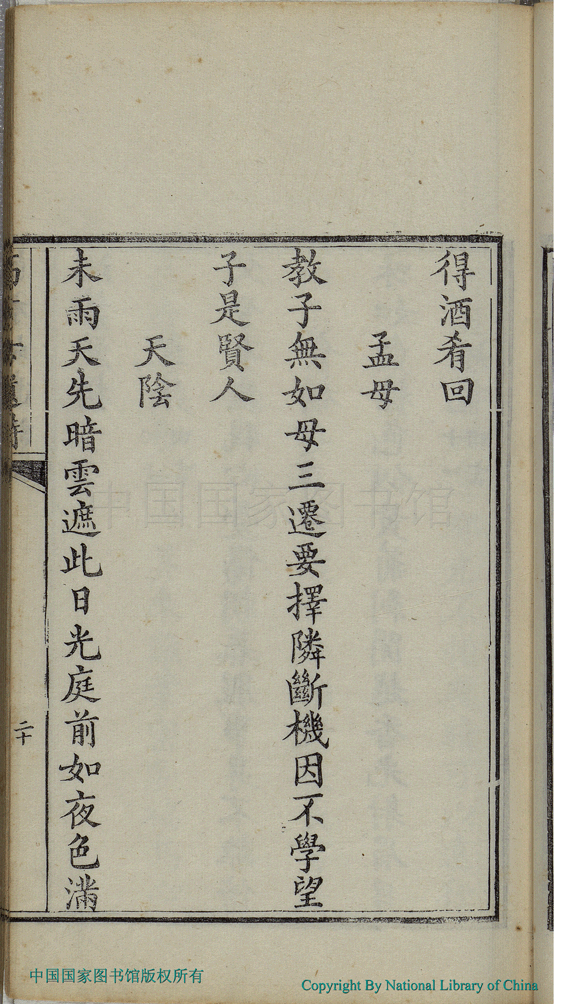 得酒肴回
孟母
教子無如母三遷要擇隣斷機因不學望
子是賢人
天陰
未雨天先暗雲遮此日光庭前如夜色滿
二十
中国国家图书馆
中国国家图书馆版权所有
Copyright By National Library of China